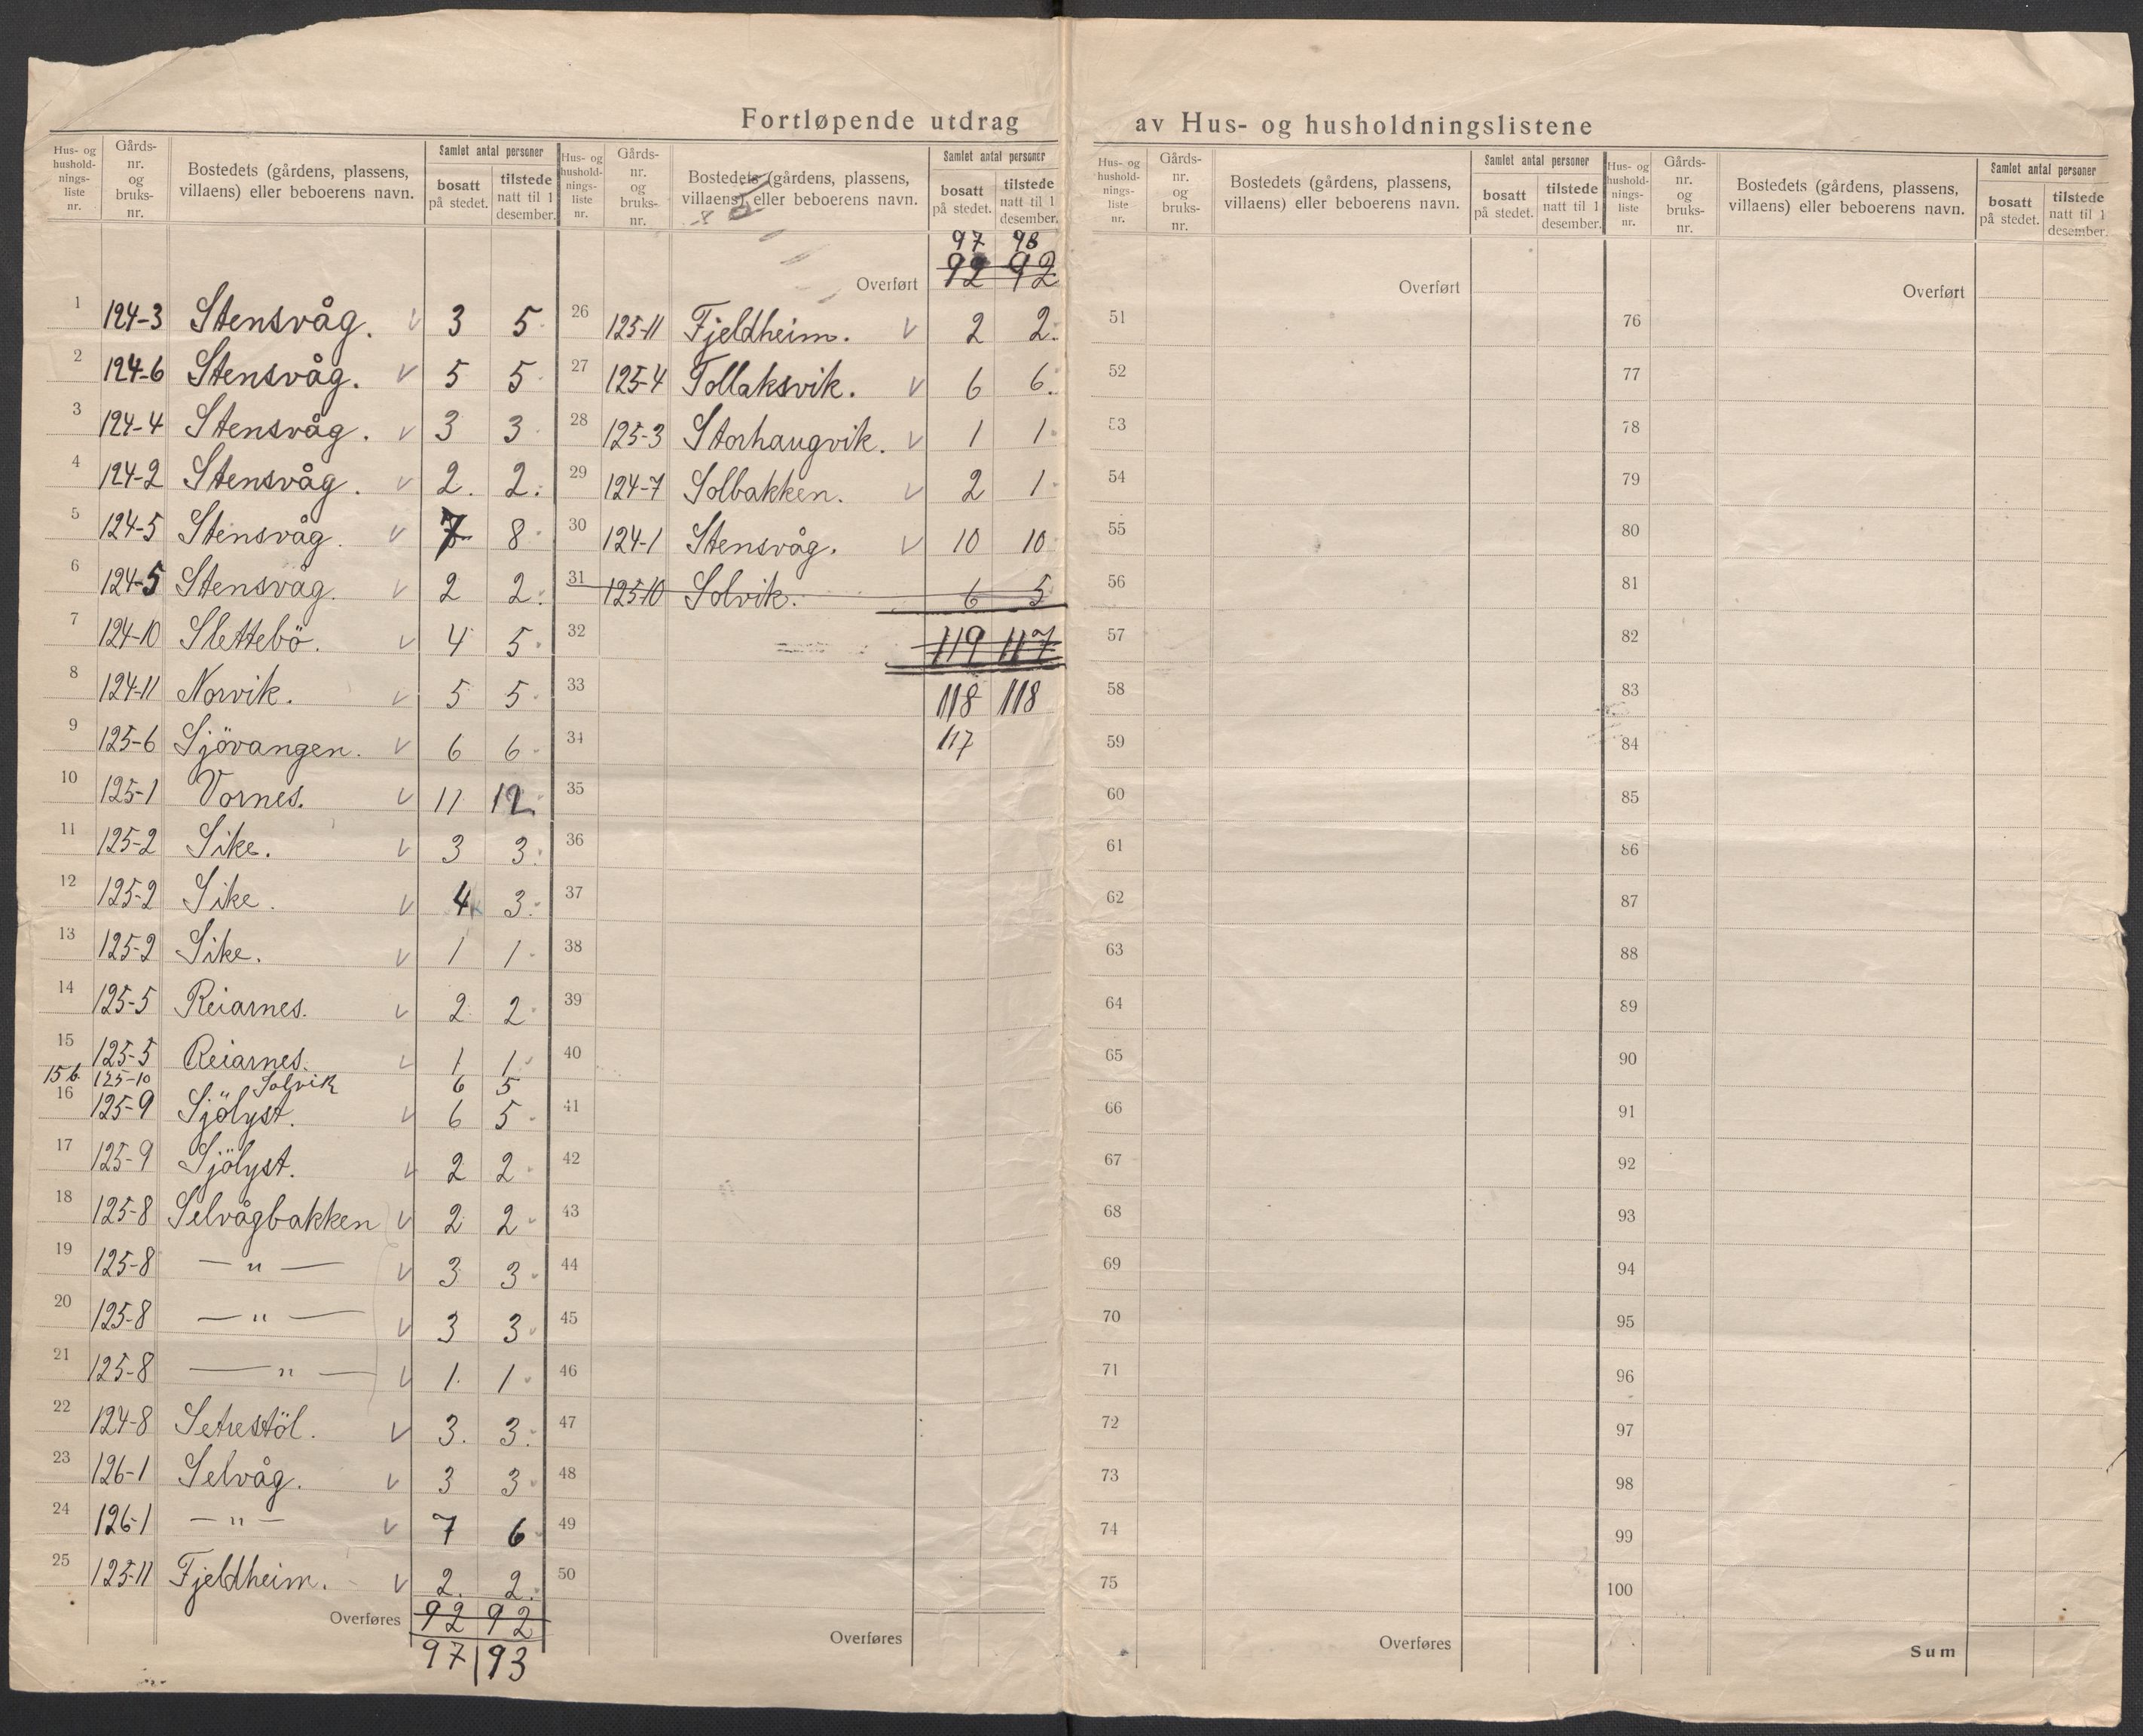 Fortløpende utdrag av Hus- og husholdningslistene
Hus- og hushold- nings- liste nr. | Gårds- nr. og bruks- nr. | Bostedets (gårdens, plassens, villaens) eller beboerens navn. | Samlet antal personer | bosatt på stedet. | tilstede natt til 1 desember.
1 124-3 Stensvåg. v 3 5
2 124-6 Stensvåg. v 5 5
3 124-4 Stensvåg. v 3 3
4 124-2 Stensvåg. v 2. 2.
5 124-5 Stensvåg. v 7 8
6 124-5 Stensvåg. v 2 2.
7 124-10 Slettebö. v 4 5
8 124-11 Norvik. v 5 5
9 125-6 Sjövangen. v 6 6
10 125-1 Vornes. v 11 12
11 125-2 Sike. v 3 3
12 125-2 Sike. v 4 3
13 125-2 Sike. v 1 1
14 125-5 Reiarnes. v 2 2
15 125-5 Reiarnes. v 1 1
15 b. 125-10 Solvik 6 5
16 125-9 Sjölyst. v 6 5
17 125-9 Sjölyst. v 2 2
18 125-8 Selvågbakken v 2 2
19 125-8 — " — v 3 3
20 125-8 — " — v 3 3
21 125-8 — " — v 1. 1
22 124-8 Setrestöl. v 3. 3.
23 126-1 Selvåg. v 3 3
24 126-1 — " — v 7 6
25 125-11 Fjeldheim. v 2. 2.
Overføres 92 92
97 93
Hus- og hushold- nings- liste nr. | Gårds- nr. og bruks- nr. | Bostedets (gårdens, plassens, villaens) eller beboerens navn. | Samlet antal personer | bosatt på stedet. | tilstede natt til 1 desember.
97 98
Overført 92 92
26 125-11 Fjeldheim. v 2 2.
27 125-4 Tollaksvik. v 6 6.
28 125-3 Storhaugvik. v 1 1
29 124-7 Solbakken. v 2 1
30 124-1 Stensvåg. v 10 10
31 125-10 Solvik. 6 5
32 119 117
33 118 118
34 117
35
36
37
38
39
40
41
42
43
44
45
46
47
48
49
50
Overføres
Hus- og hushold- nings- liste nr. | Gårds- nr. og bruks- nr. | Bostedets (gårdens, plassens, villaens) eller beboerens navn. | Samlet antal personer | bosatt på stedet. | tilstede natt til 1 desember.
Overført
51
52
53
54
55
56
57
58
59
60
61
62
63
64
65
66
67
68
69
70
71
72
73
74
75
Overføres
Hus- og hushold- nings- liste nr. | Gårds- nr. og bruks- nr. | Bostedets (gårdens, plassens, villaens) eller beboerens navn. | Samlet antal personer | bosatt på stedet. | tilstede natt til 1 desember.
Overført
76
77
78
79
80
81
82
83
84
85
86
87
88
89
90
91
92
93
94
95
96
97
98
99
100
Sum